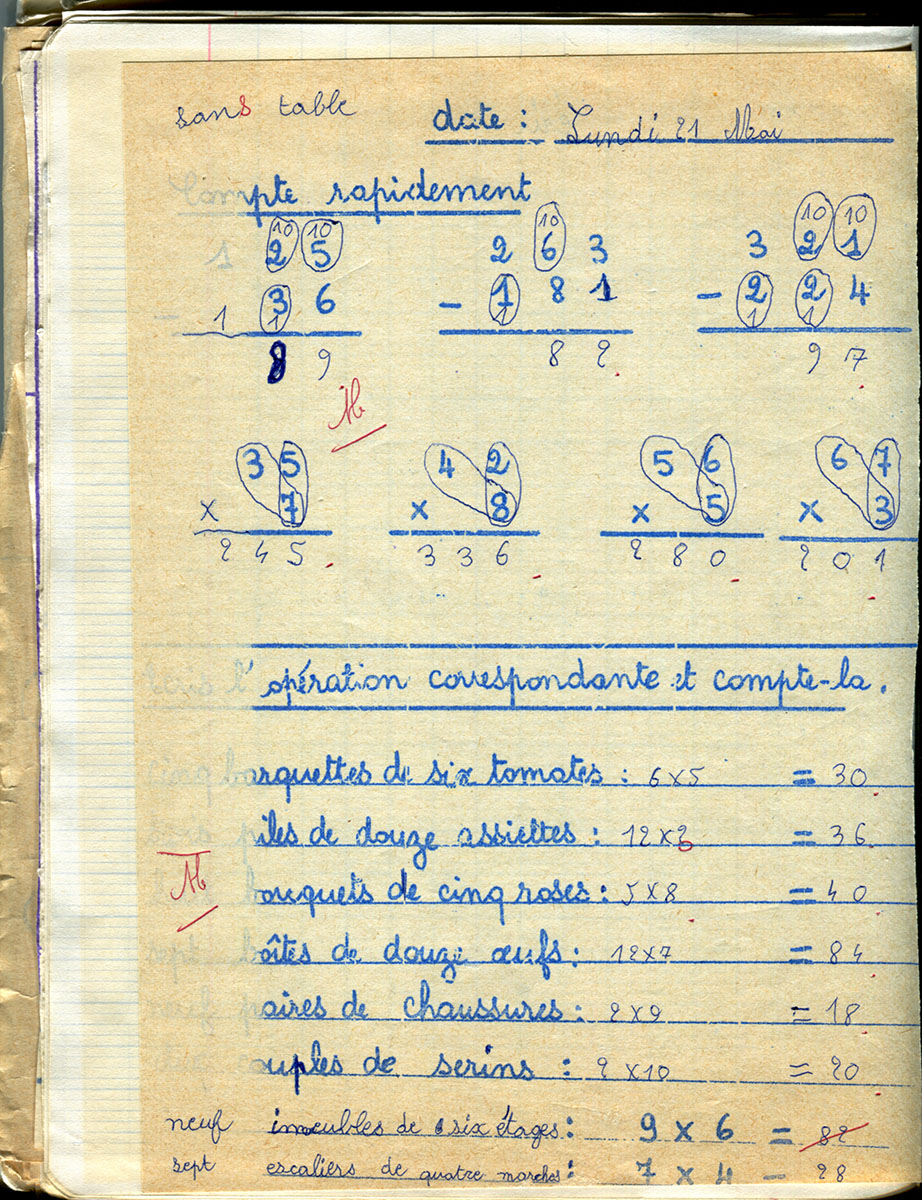 sans table date : Lundi 21 Mai
Compte rapidement
10 10 10 10 10
1 2 5 2 6 3 3 2 1
- 1 3 6 - 1 8 1 - 2 2 4
1 1 1 1
8 9 8 2 9 7
M
3 5 4 2 5 6 6 7
x 7 x 8 x 5 x 3
2 4 5 3 3 6 2 8 0 2 0 1
l'opération correspondante et compte-la.
cinq barquettes de six tomates : 6 x 5 = 30
piles de douze assiettes : 12 x 3 = 36
M
bouquets de cinq roses : 5 x 8 = 40
sept boîtes de douze œufs : 12 x 7 = 84
neuf paires de chaussures : 2 x 9 = 18
couples de serins : 2 x 10 = 20
neuf immeubles de six étages : 9 x 6 = 82
sept escaliers de quatre marches : 7 x 4 = 28